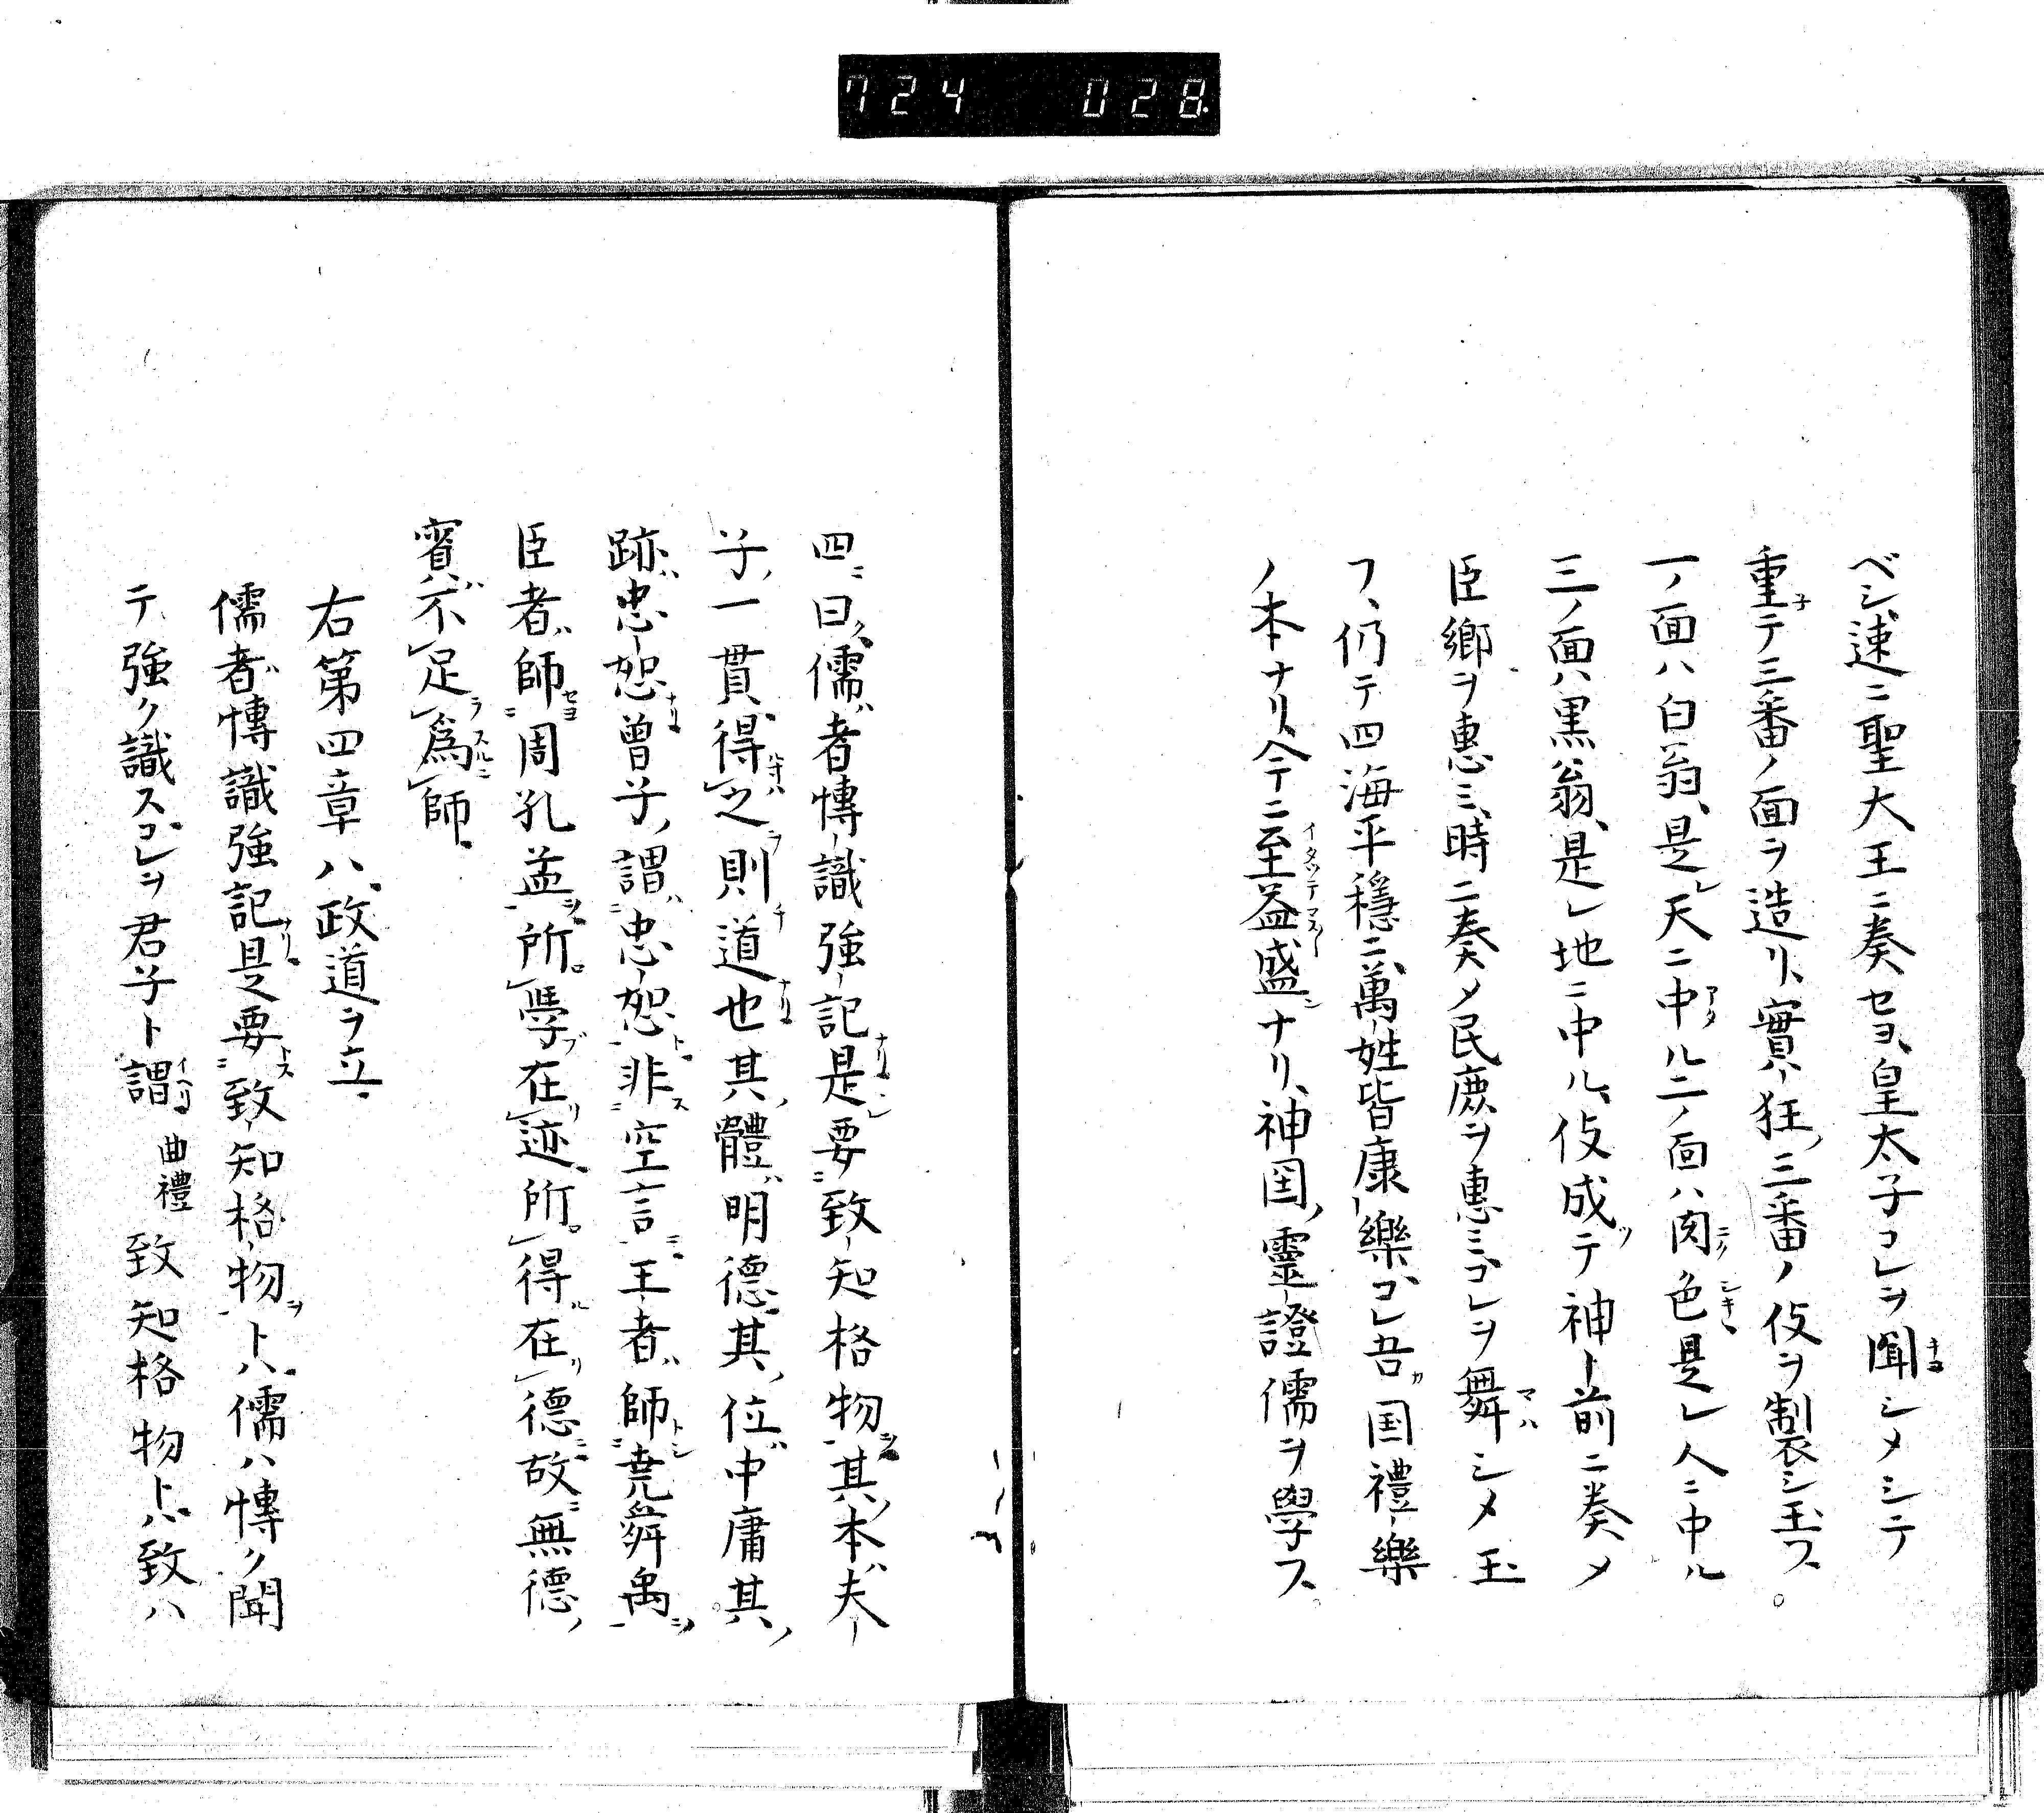 724 028
ベシ、速ニ聖大王ニ奏セヨ、皇太子コレヲ聞シメシテ
重テ三番ノ面ヲ造リ、實ハ狂、三番ノ伎ヲ製シ玉フ。
一ノ面ハ白翁、是レ天ニ中ル二ノ面ハ肉色是レ人ニ中ル
三ノ面ハ黒翁、是レ地ニ中ル、伎成テ神ト前ニ奏メ
臣郷ヲ惠ミ、時ニ奏メ民庶ヲ惠ミ、コレヲ舞シメ玉
フ、仍テ四海平穩ニ、萬姓皆康樂、コレ吾国禮樂
ノ本ナリ、今ニ至益盛ナリ、神国ノ靈證儒ヲ學フ。
四ニ曰ク、儒者ハ慱識強記是レ要ニ致知格物其ノ本ハ夫
子ノ一貫得之則道也其ノ體ハ明德其ノ位ハ中庸其ノ
跡ハ忠恕曽子ノ謂ハ忠恕非空言王者ハ師堯舜禹
臣者ハ師周孔孟所學在迹所得在德故無德ノ
賓ハ不足爲師
右第四章ハ、政道ヲ立
儒者慱識強記是要致知格物トハ、儒ハ慱ク聞
テ、強ク識スコレヲ君子ト謂 曲禮 致知格物トハ、致ハ